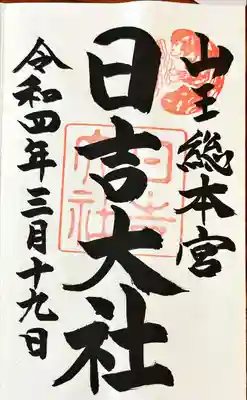 山王総本宮
日吉大社
令和四年三月十九日
日吉大社